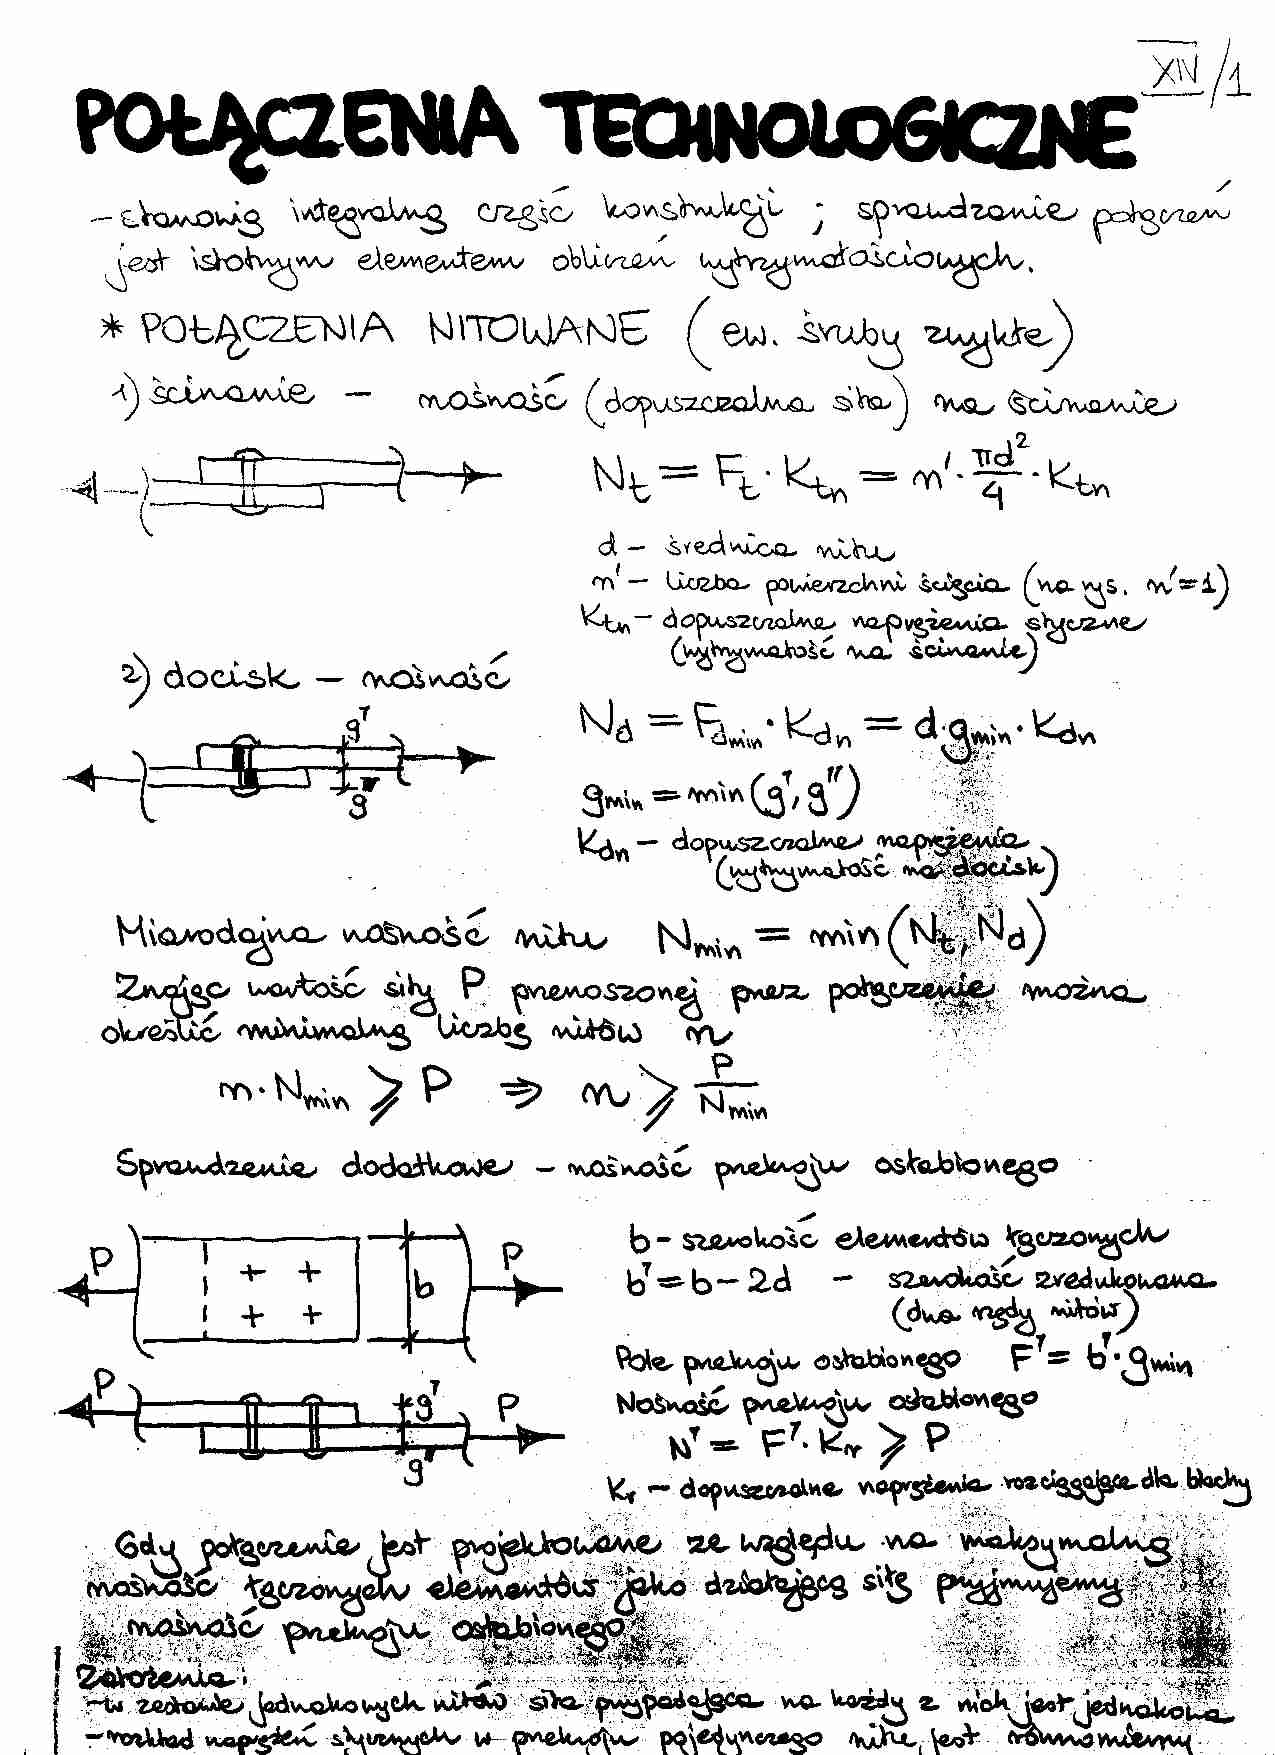 XIV/1
POŁĄCZENIA TECHNOLOGICZNE
– stanowią integralną część konstrukcji ; sprawdzanie połączeń
jest istotnym elementem obliczeń wytrzymałościowych.
* POŁĄCZENIA NITOWANE (ew. śruby zwykłe)
1) ścinanie – nośność (dopuszczalna siła) na ścinanie
N_t = F_t · K_tn = m' · πd²/4 · K_tn
d – średnica nitu
m' – liczba powierzchni ścięcia (na rys. m'=1)
K_tn – dopuszczalne naprężenia styczne
(wytrzymałość na ścinanie)
2) docisk – nośność
g'
g"
N_d = F_dmin · K_dn = d · g_min · K_dn
g_min = min(g', g")
K_dn – dopuszczalne naprężenia
(wytrzymałość na docisk)
Miarodajna nośność nitu N_min = min(N_t, N_d)
Znając wartość siły P przenoszonej przez połączenie można
określić minimalną liczbę nitów n
n · N_min ⩾ P ⇒ n ⩾ P/N_min
Sprawdzenie dodatkowe – nośność przekroju osłabionego
P
b
P
b – szerokość elementów łączonych
b' = b – 2d – szerokość zredukowana
(dwa rzędy nitów)
Pole przekroju osłabionego F' = b' · g_min
P
g'
P
g"
Nośność przekroju osłabionego
N' = F' · K_r ⩾ P
K_r – dopuszczalne naprężenia rozciągające dla blachy
Gdy połączenie jest projektowane ze względu na maksymalną
nośność łączonych elementów jako działającą siłę przyjmujemy
nośność przekroju osłabionego
Założenia:
– w zestawie jednakowych nitów siła przypadająca na każdy z nich jest jednakowa
– rozkład naprężeń stycznych w przekroju pojedynczego nitu jest równomierny